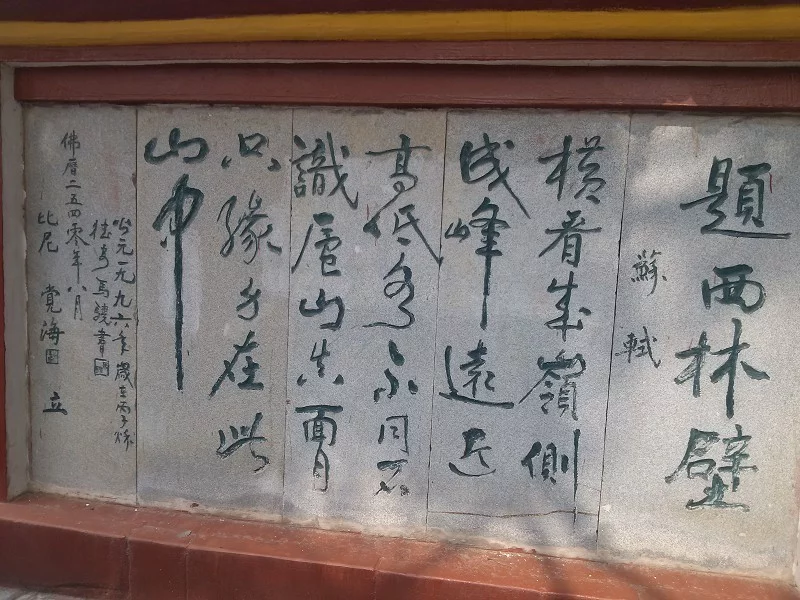 題西林壁
蘇軾
横看成嶺側
成峰遠近
高低各不同不
識廬山真面目
只緣身在此
山中
公元一九九六年歲在丙子秋
馬 書
佛曆二五四零年八月
比尼 覚海 立